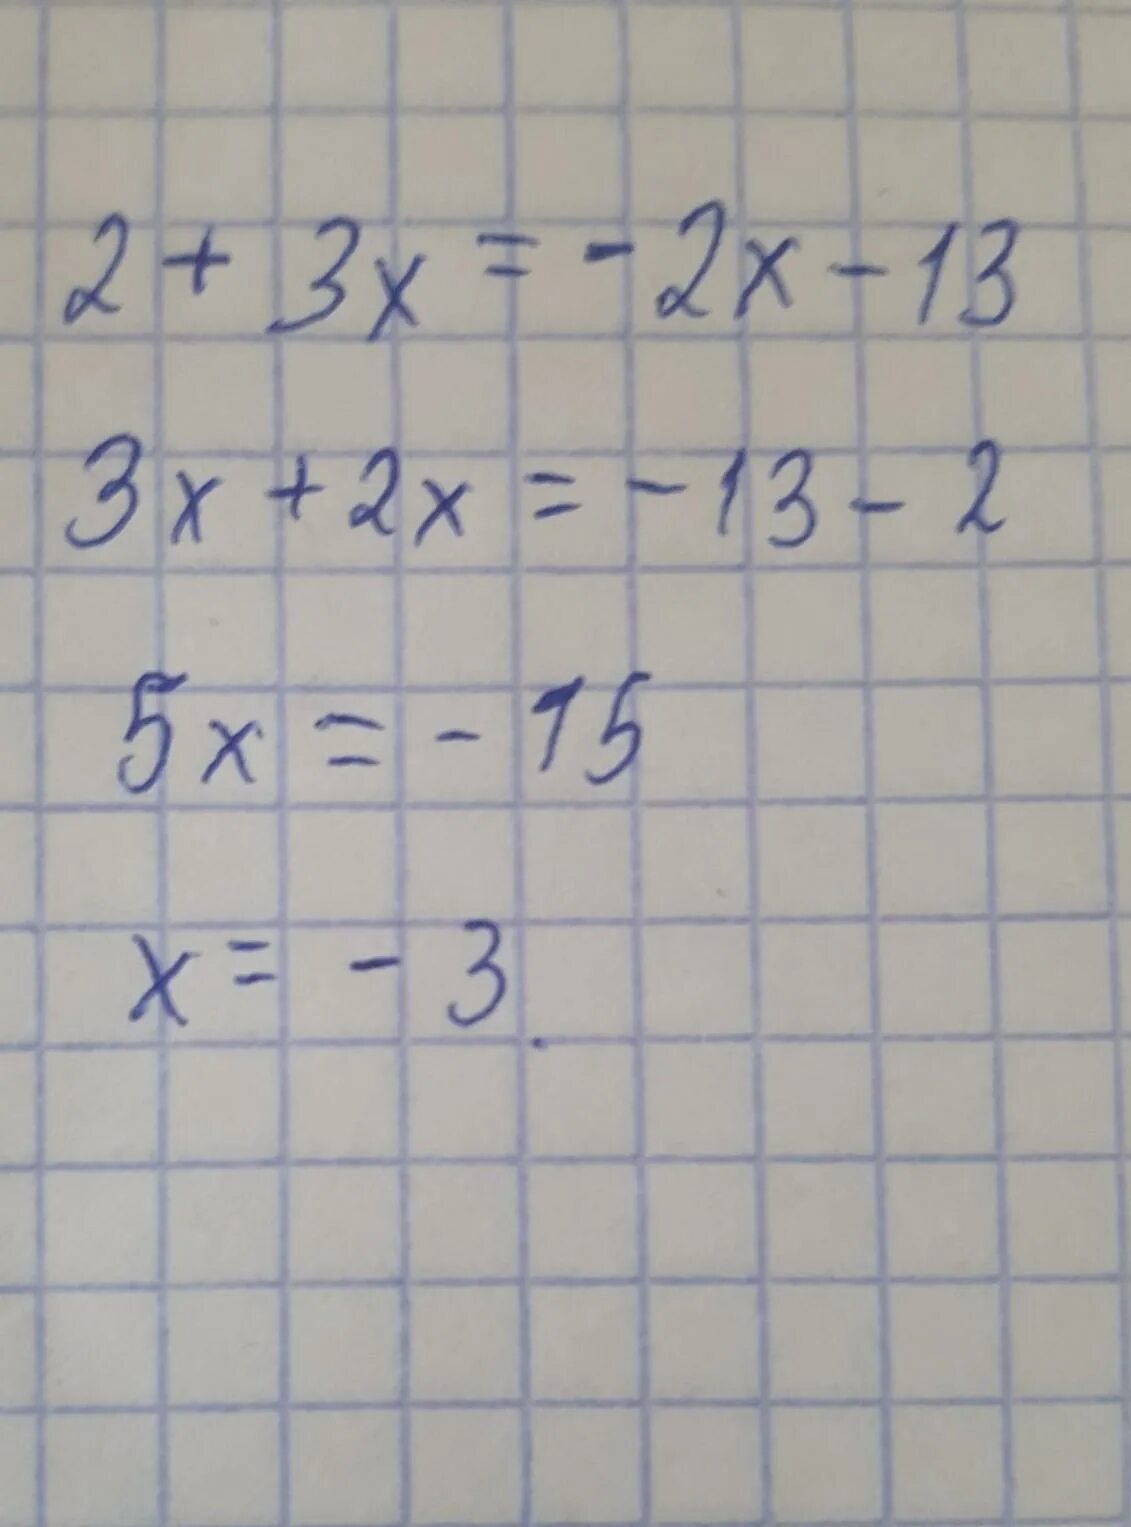 2 + 3x = - 2x - 13
3x + 2x = - 13 - 2
5x = - 15
x = - 3.